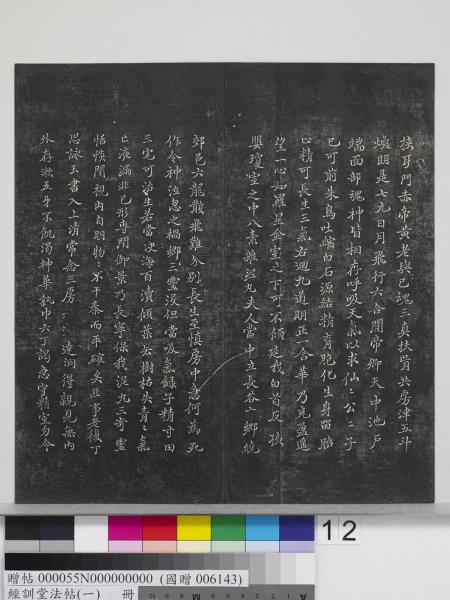 扶牙門赤帝黃老與己魂三真扶胥共房津五斗
煥明是七元日月飛行六合間帝鄉天中池戶
端面部魂神皆相存呼吸天氣以求仙仙公公子
已可前朱鳥吐縮白石源結精育胞化生身留胎
止精可長生三氣右迴九道明正一含華乃充盈遥
望一心如羅星金室之下可不傾延我白首反孩
嬰瓊室之中八素集泥丸夫人當中立長谷六鄉繞
郊邑六龍散飛難分別長生至慎房中急何為死
作令神泣忽之禍鄉三靈沒但當吸氣錄子精寸田
尺宅可治生若當決海百瀆傾葉去樹枯失青青氣
亡液漏非己形專閉御景乃長寧保我泥丸三奇靈
恬惔閉視內自明物物不干泰而平確矣匪事老復丁
思詠玉書入上清常念三房達洞得視見無內
外存漱五牙不飢渴神華執巾六丁謁急守精室勿令
12
贈帖 000055N000000000 (國贈 006143)
經訓堂法帖(一) 冊